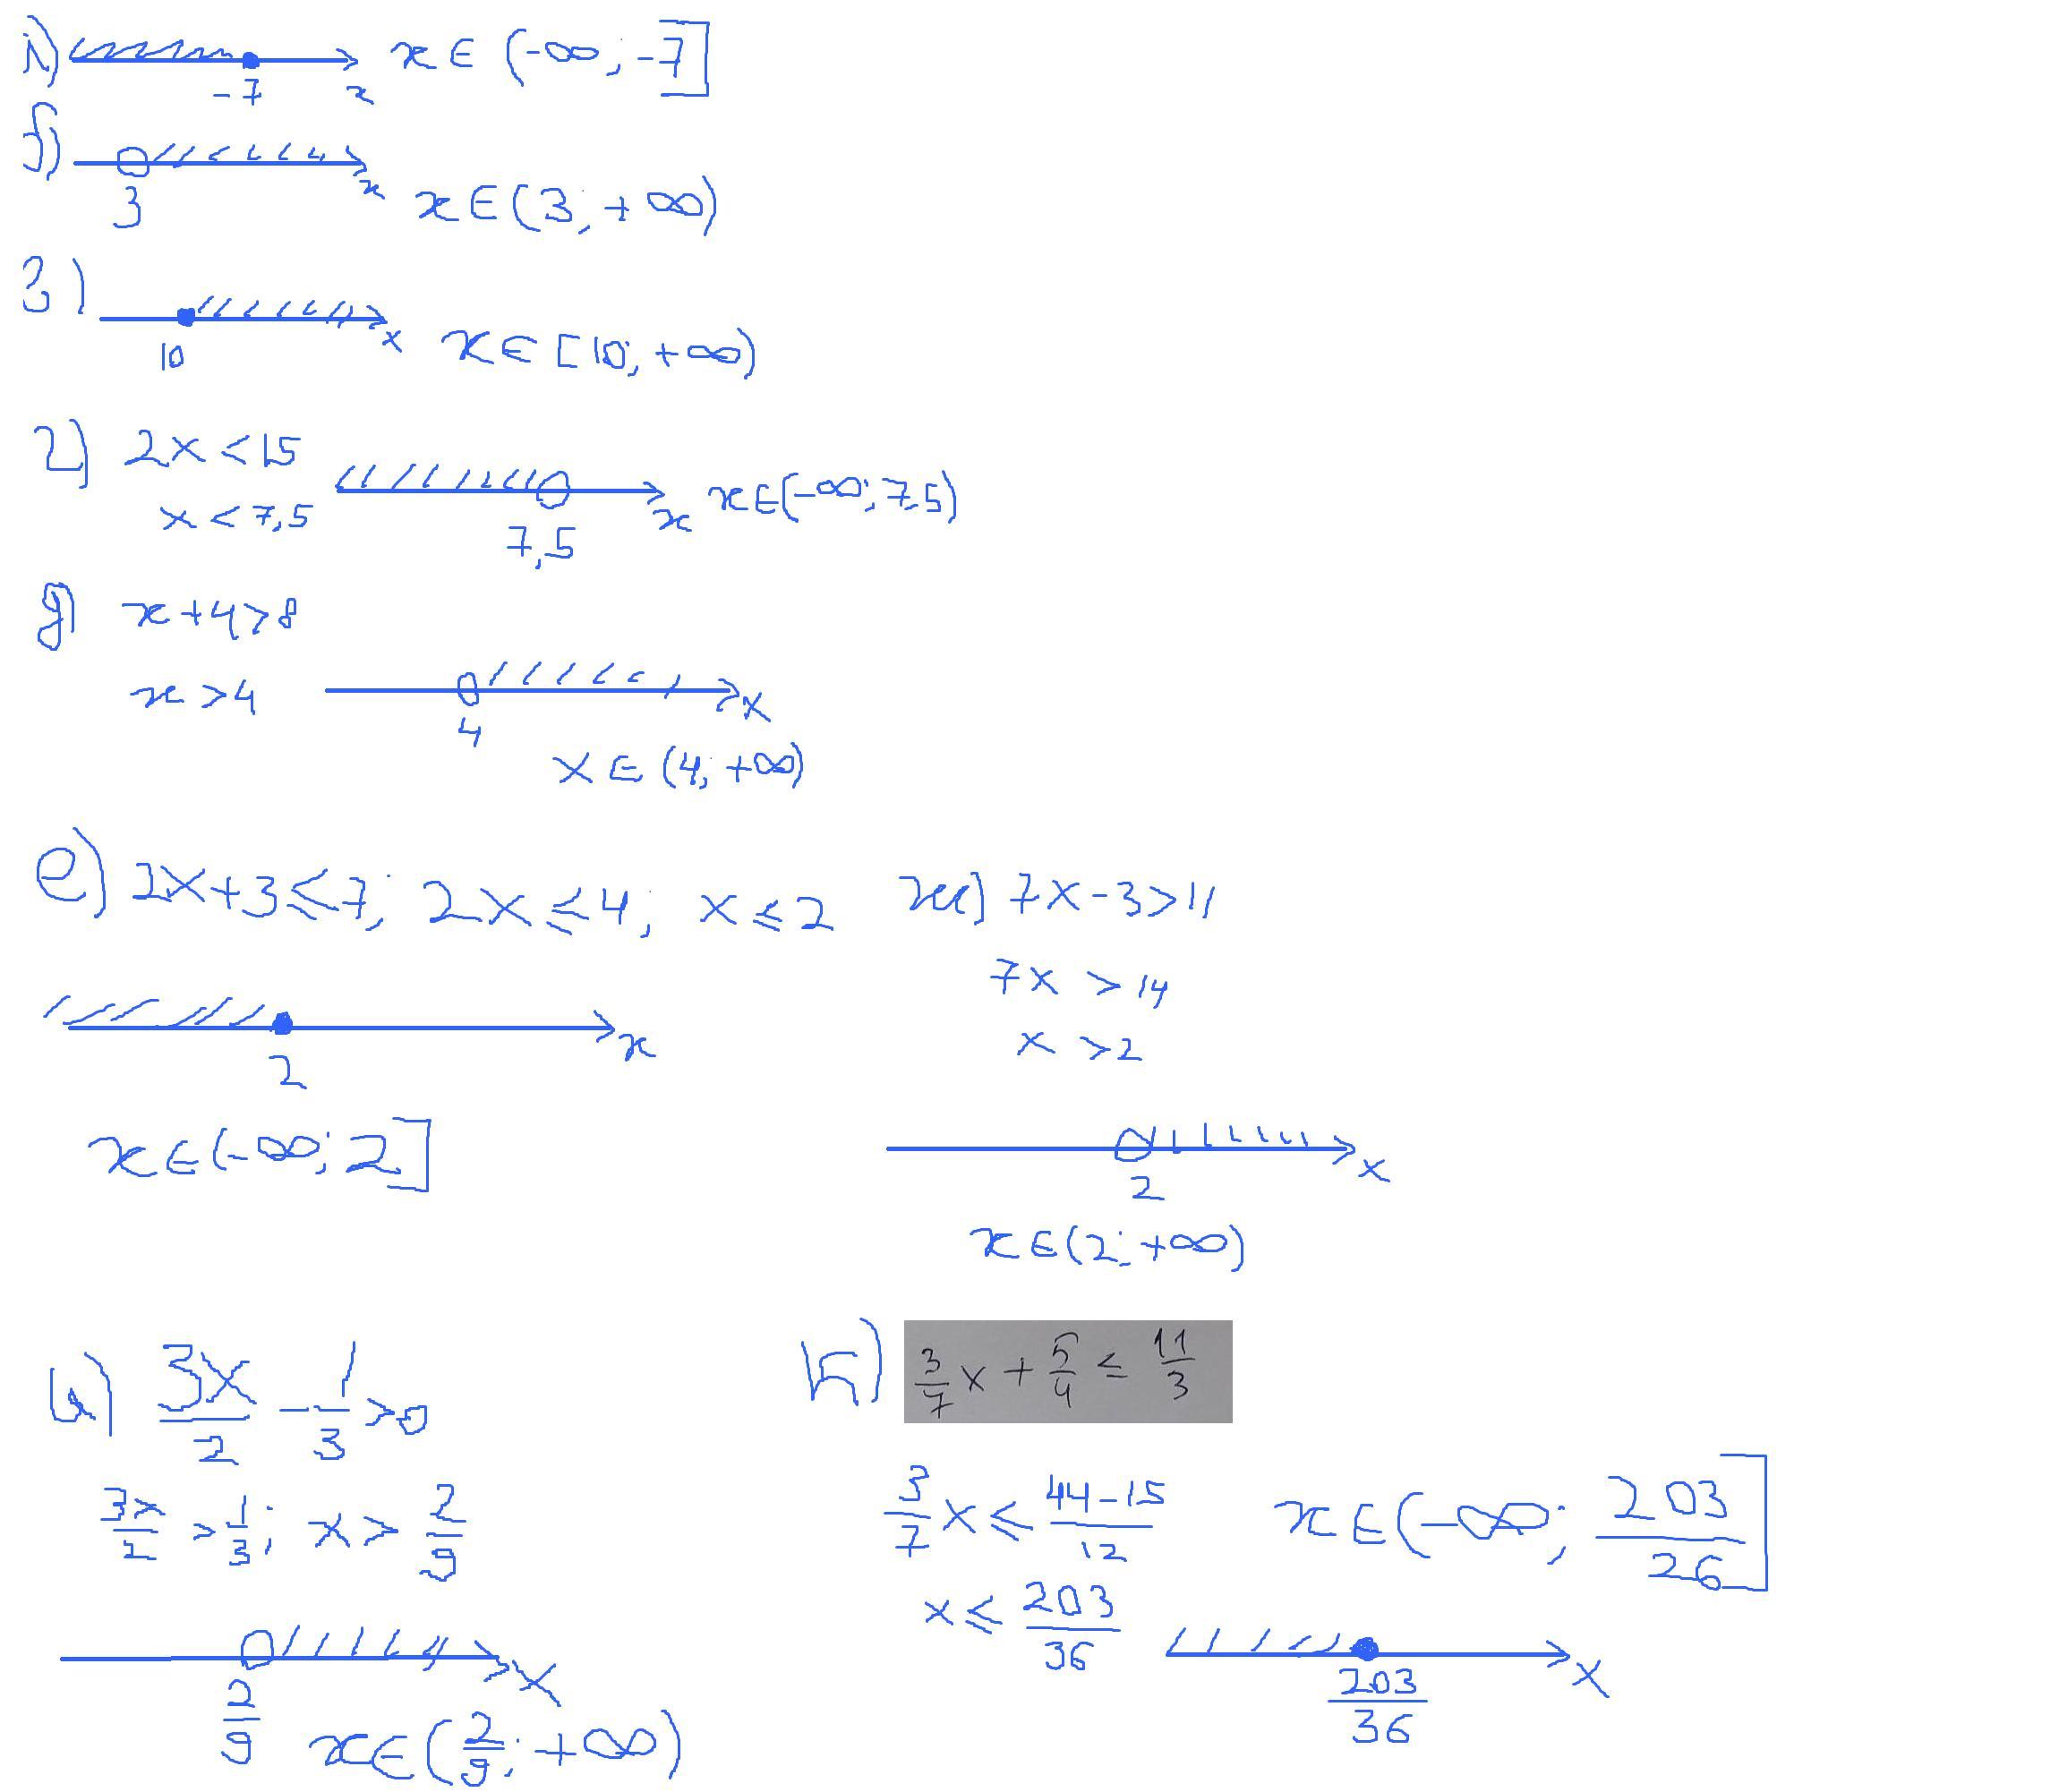 а) x∈(-∞; -7]
-7 x
б)
3 x x∈(3; +∞)
з)
10 x x∈[10; +∞)
г) 2x<15
x<7,5 x x∈(-∞; 7,5)
7,5
д) x+4>8
x>4 x
4
x∈(4; +∞)
е) 2x+3≤7; 2x≤4; x≤2
x
2
x∈(-∞; 2]
ж) 7x-3>11
7x >14
x >2
x
2
x∈(2; +∞)
и) 3x/2 - 1/3 >0
3x/2 > 1/3; x > 2/9
x
2/9 x∈(2/9; +∞)
к) 3/7 x + 5/4 ≤ 11/3
3/7 x ≤ (44-15)/12 x∈(-∞; 203/26]
x ≤ 203/36
x
203/36